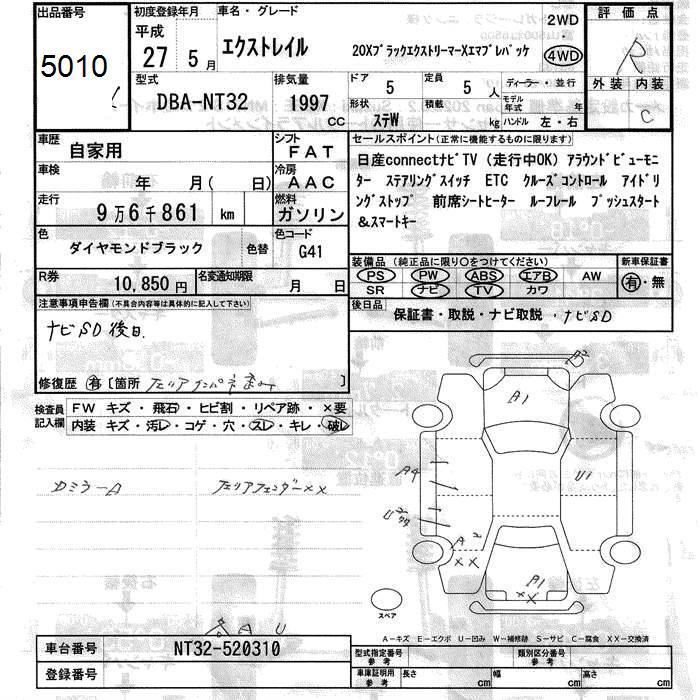 出品番号
5010
初度登録年月
平成
27 5月
車名・グレード
エクストレイル 20XブラックエクストリーマーXエマブレパッケ
2WD
・
4WD
評価点
R
外装 内装
C
型式
DBA-NT32
排気量
1997 CC
ドア
5
定員
5 人
形状
ステW
積載
kg
ディーラー・並行
モデル年式 年
ハンドル 左・右
車歴
自家用
シフト
FAT
車検
年 月( 日)
冷房
AAC
走行
9万6千861 km
燃料
ガソリン
色
ダイヤモンドブラック
色替
色コード
G41
R券
10,850円
名変通知期限
月 日
セールスポイント(正常に機能するものに限ります)
日産connectナビTV (走行中OK) アラウンドビューモニ
ター ステアリングスイッチ ETC クルーズコントロール アイドリ
ングストップ 前席シートヒーター ルーフレール プッシュスタート
&スマートキー
装備品(純正品に限り○をつけてください)
PS PW ABS エアB AW
SR ナビ TV カワ
新車保証書
有・無
後日品
保証書・取説・ナビ取説・ナビSD
注意事項申告欄(不具合内容等は具体的に記入して下さい)
ナビSD後日.
修復歴 有 [箇所 ]
検査員
記入欄
FW キズ・飛石・ヒビ割・リペア跡・×要
内装 キズ・汚レ・コゲ・穴・スレ・キレ・破レ
DミラーA
左リアフェンダーXX
A2
A1
A4
U1
A2
XX
A1
XX
A U
スペア
A-キズ E-エクボ U-凹み W-補修跡 S-サビ C-腐食 XX-交換済
車台番号
NT32-520310
登録番号
型式指定番号
参考
類別区分番号
参考
車庫証明用
参考
長さ cm
幅 cm
高さ cm